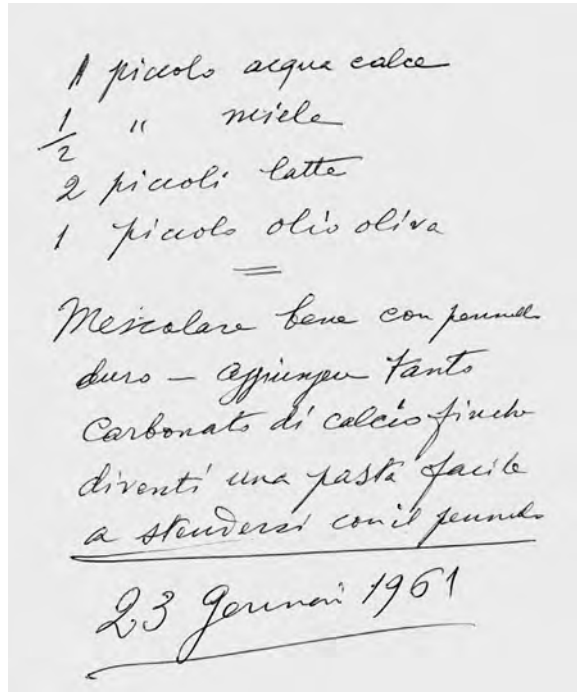 1 piccolo acqua calce
1/2 " miele
2 piccoli latte
1 piccolo olio oliva
Mescolare bene con pennello
duro – aggiungere tanto
Carbonato di calcio finche
diventi una pasta facile
a stendersi con il pennello
23 Gennaio 1961